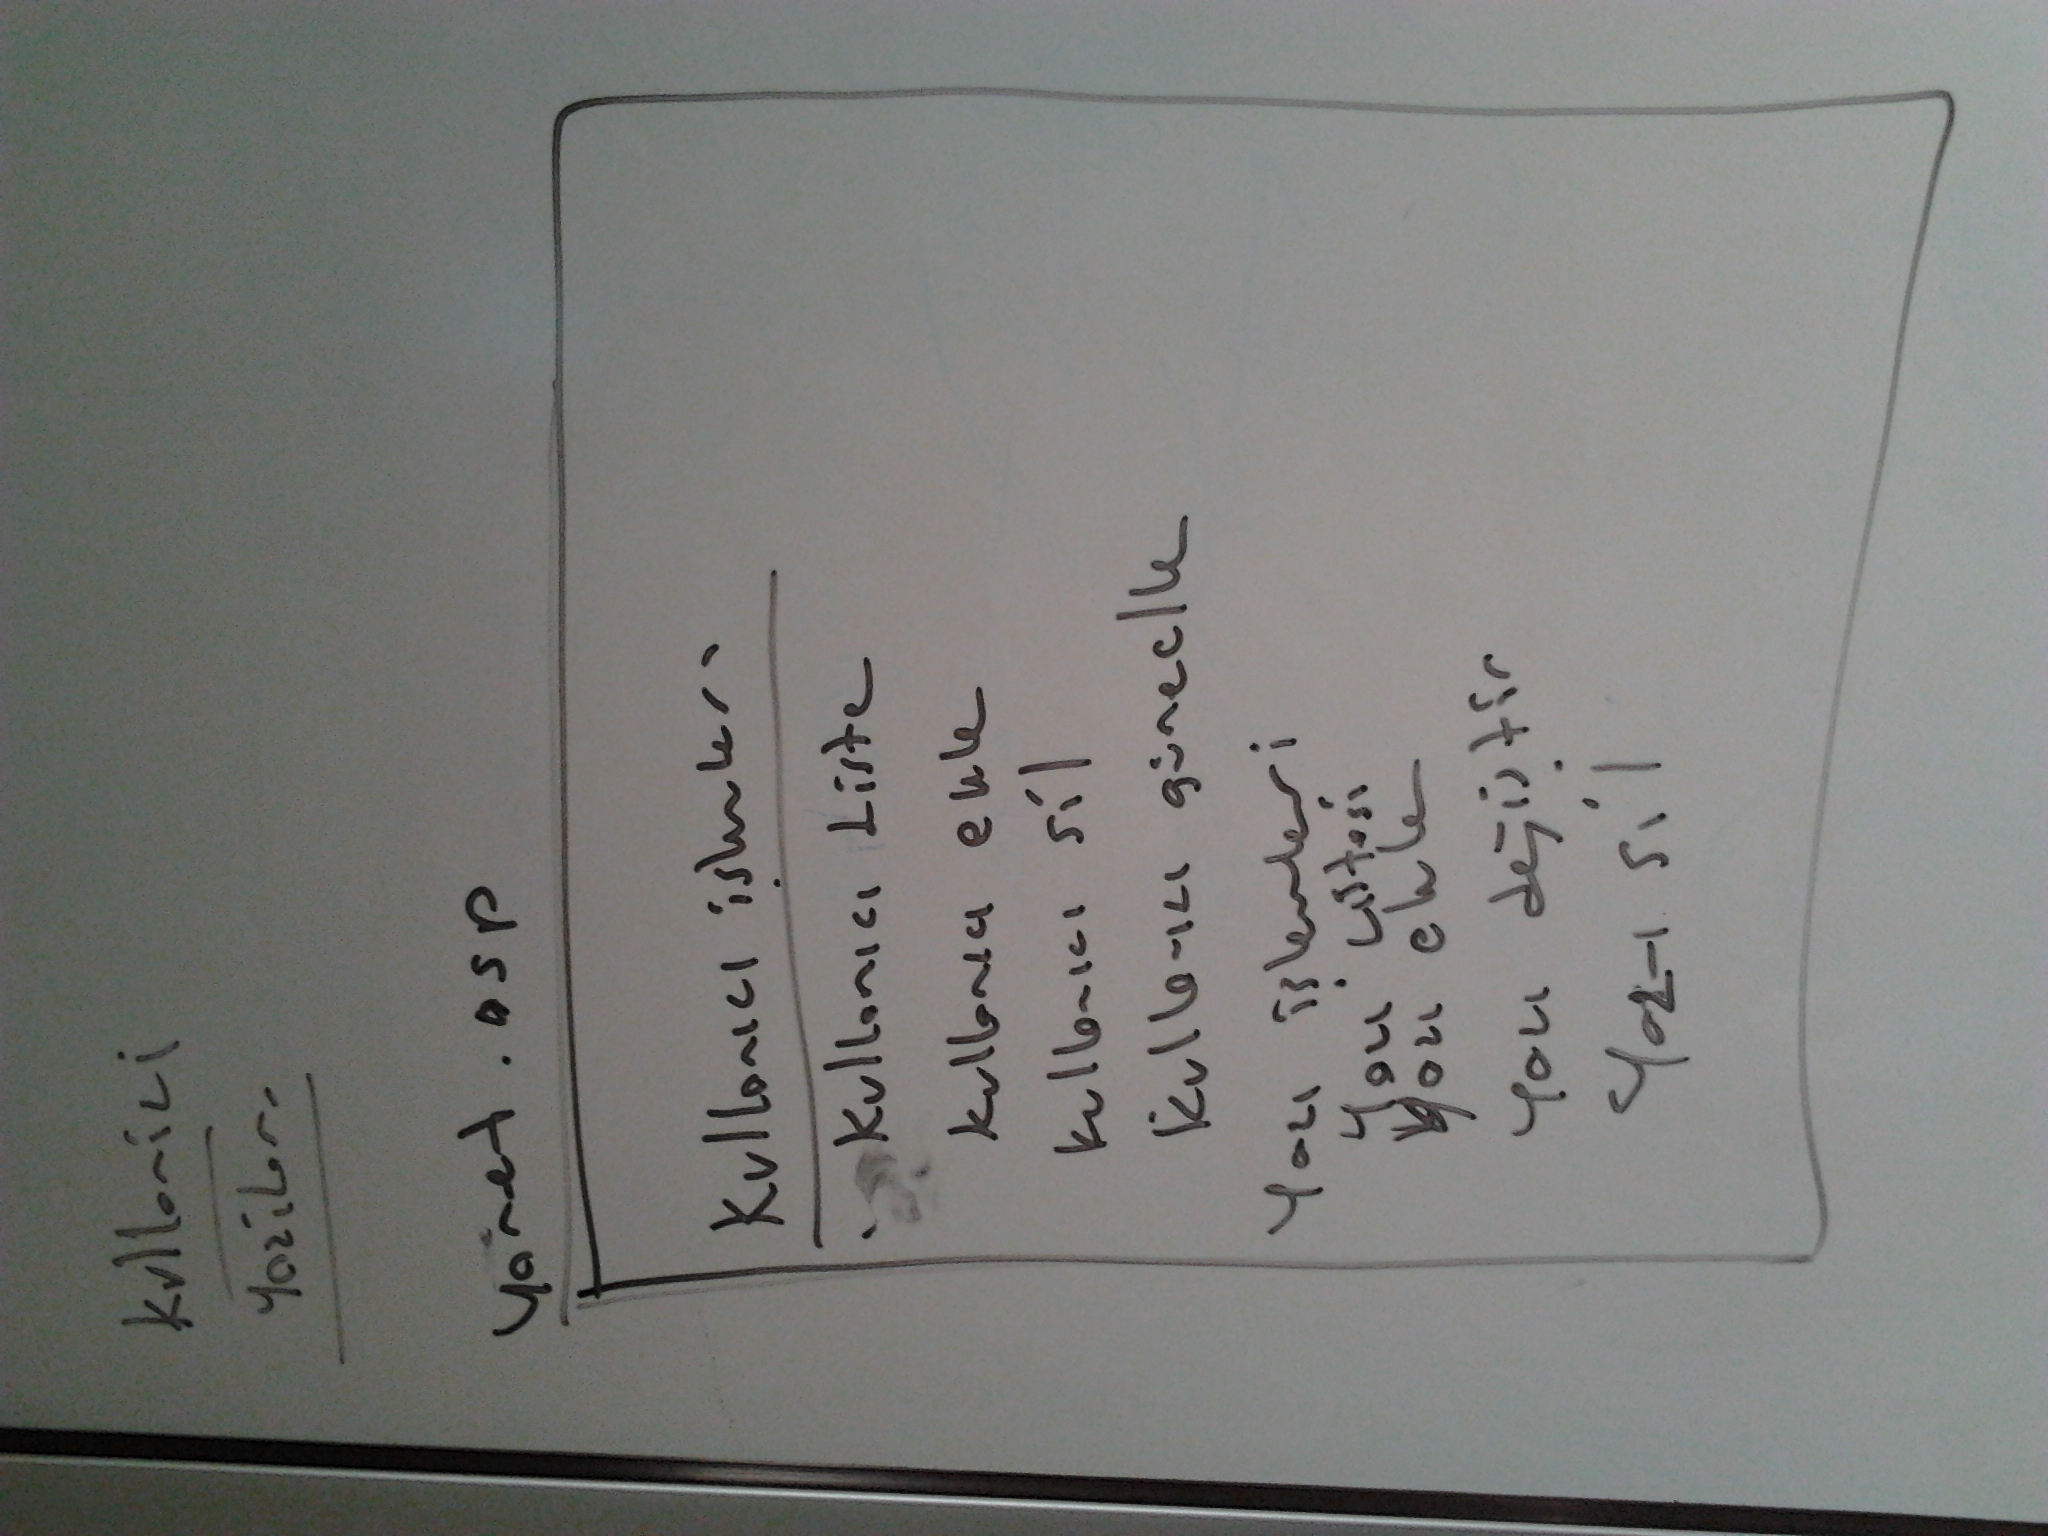 Kullanici
Yazilar
Yönet.asp
Kullanıcı işlemleri
Kullanıcı Liste
Kullanıcı ekle
Kullanıcı sil
Kullanıcı güncelle
Yazı işlemleri
Yazı Listesi
Yazı ekle
Yazı değiştir
Yazı sil